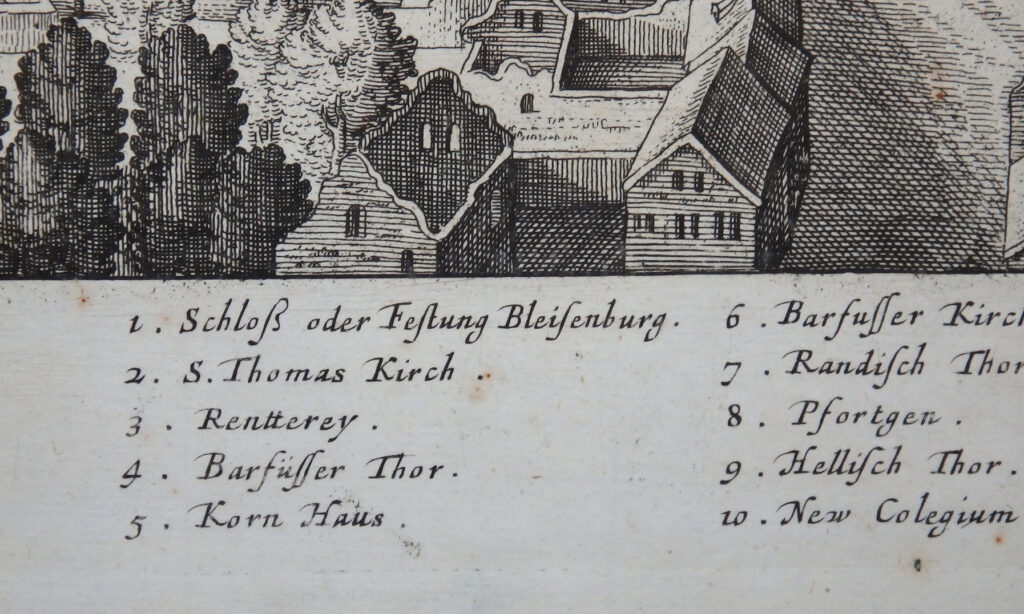 1. Schloß oder Feſtung Bleiſenburg.
2. S. Thomas Kirch.
3. Rentterey.
4. Barfüſſer Thor.
5. Korn Haus.
6. Barfuſſer Kirch
7. Randiſch Thor
8. Pfortgen.
9. Helliſch Thor.
10. New Colegium